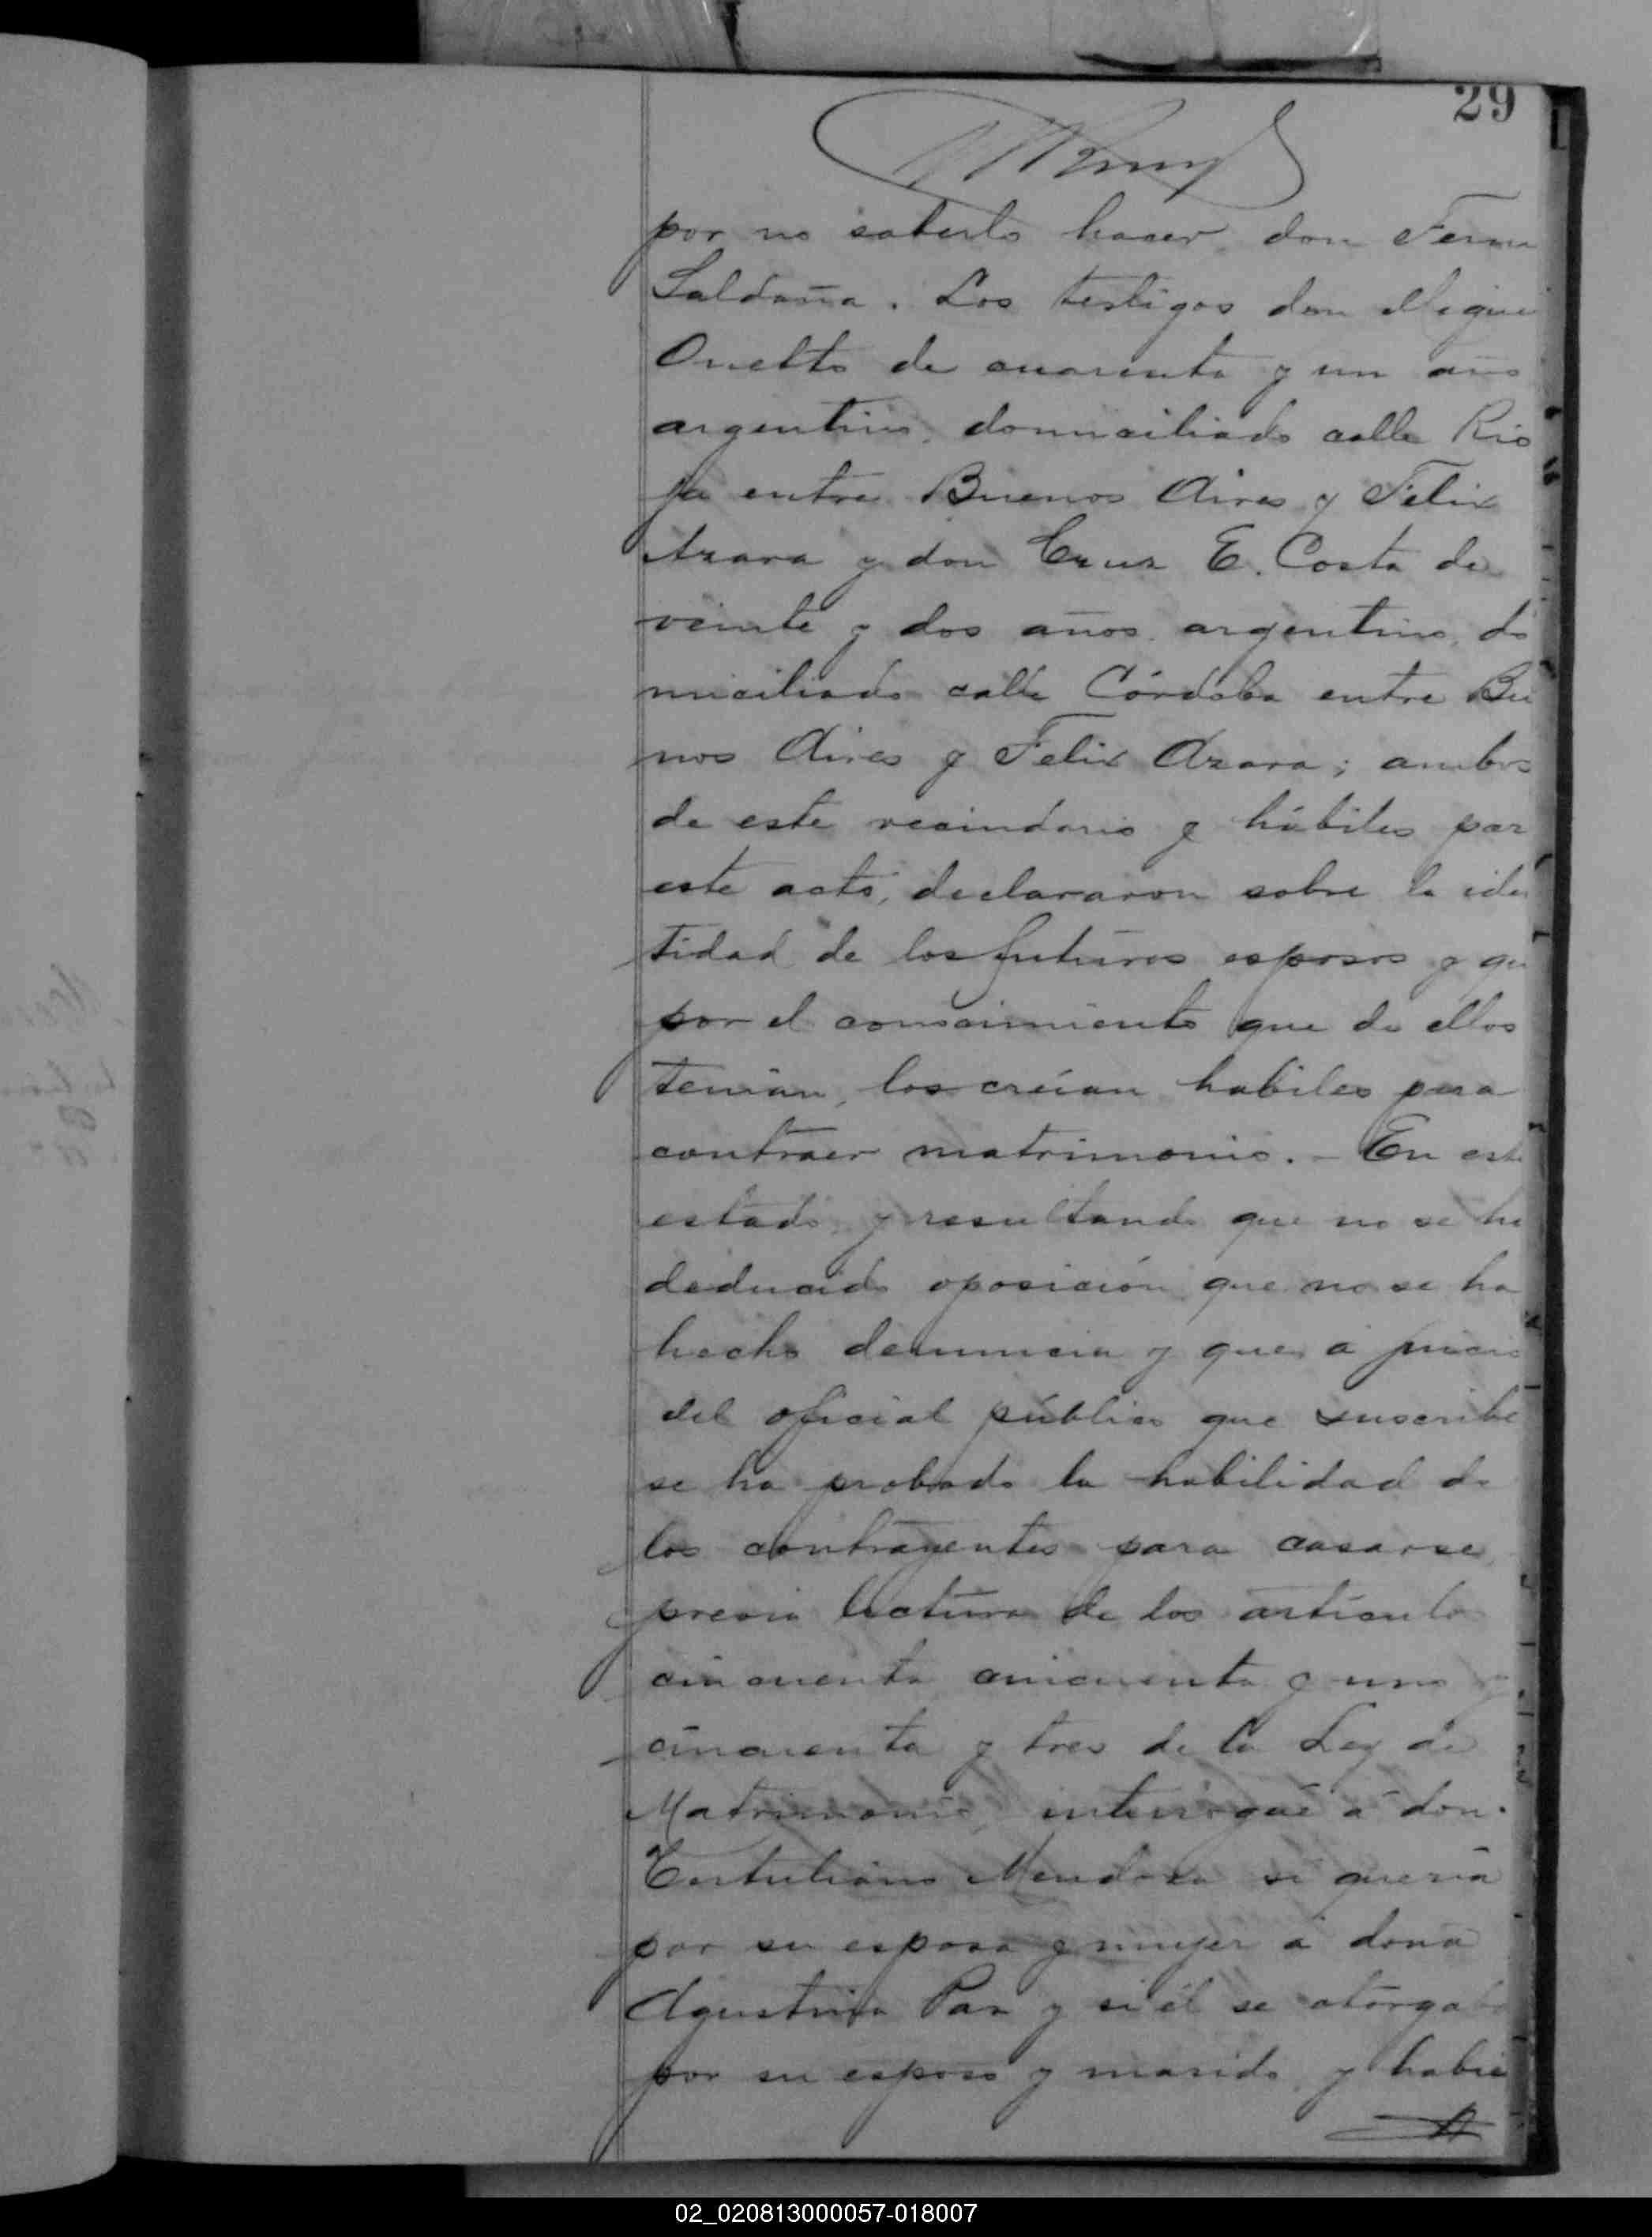 29
por no saberlo hacer, don Ferm
Saldaña. Los testigos don Migue
Onetto de cuarenta y un año
argentino, domiciliado calle Rio
ja entre Buenos Aires y Felix
Azara y don Cruz E. Costa de
veinte y dos años, argentino, do
miciliado calle Córdoba entre Bue
nos Aires y Felix Azara; ambos
de este vecindario y hábiles par
este acto, declararon sobre la iden
tidad de los futuros esposos y que
por el conocimiento que de ellos
tenian, los creían habiles para
contraer matrimonio. - En este
estado y resultando que no se ha
deducido oposición, que no se ha
hecho denuncia y que, á juicio
del oficial público que suscribe
se ha probado la habilidad de
los contrayentes para casarse,
previa lectura de los artículos
cincuenta, cincuenta y uno y
cincuenta y tres de la Ley de
Matrimonio, interrogué á don
Tertuliano Mendoza si quería
por su esposa y mujer á doña
Agustina Paz y si él se otorgaba
por su esposo y marido, y habié
02_020813000057-018007